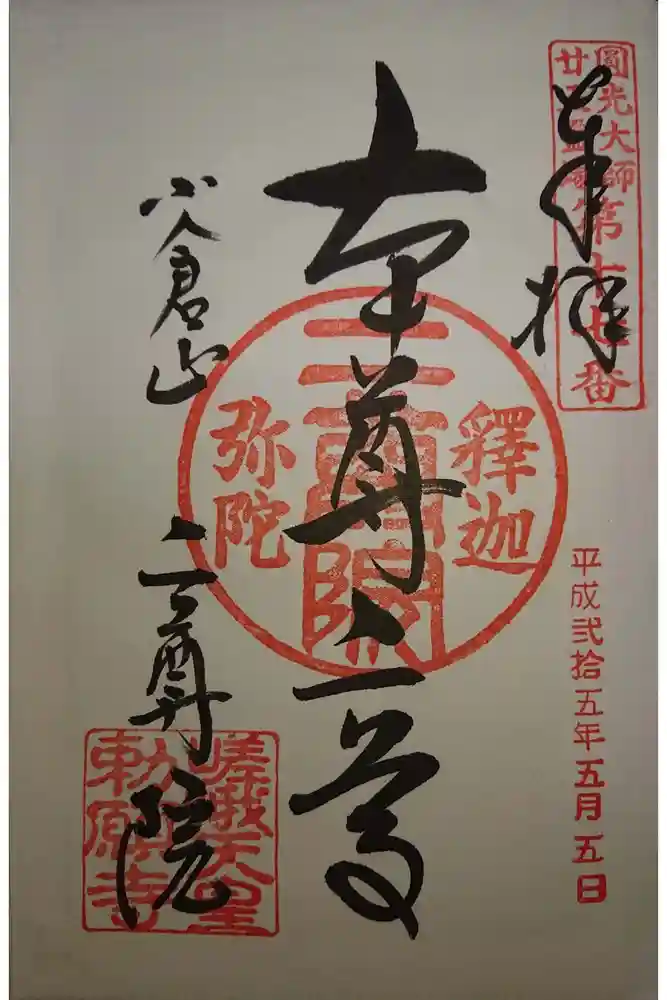 奉拝
圓光大師
廿五霊場
第十七番
平成弐拾五年五月五日
本尊二尊
釋迦
二尊院
弥陀
小倉山
二尊院
嵯峨天皇
勅願寺